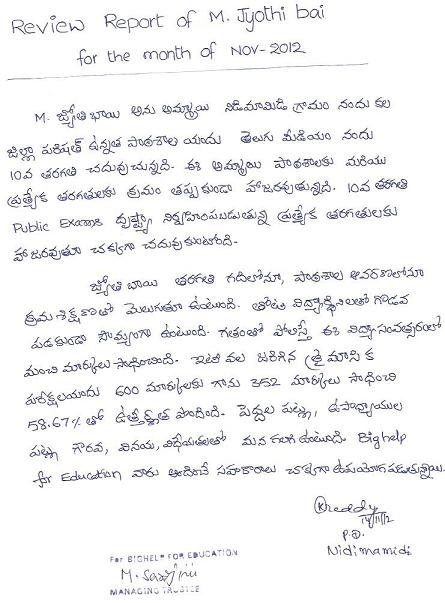 Review Report of M. Jyothi bai
for the month of NOV-2012
M. జ్యోతి భాయి అను అమ్మాయి నిడిమామిడి గ్రామం నందు కల
జిల్లా పరిషత్ ఉన్నత పాఠశాల యందు తెలుగు మీడియం నందు
10వ తరగతి చదువుచున్నది. ఈ అమ్మాయి పాఠశాలకు మరియు
ప్రత్యేక తరగతులకు క్రమం తప్పకుండా హాజరవుతున్నది. 10వ తరగతి
Public Exams దృష్ట్యా నిర్వహింపబడుతున్న ప్రత్యేక తరగతులకు
హాజరవుతూ చక్కగా చదువుకుంటోంది.
జ్యోతి బాయి తరగతి గదిలోనూ, పాఠశాల ఆవరణలోనూ
క్రమశిక్షణతో మెలుగుతూ ఉంటుంది. తోటి విద్యార్థినిలతో గొడవ
పడకుండా సౌమ్యంగా ఉంటుంది. గతంతో పోలిస్తే ఈ విద్యాసంవత్సరంలో
మంచి మార్కులు సాధించింది. ఇటీవల జరిగిన త్రైమాసిక
పరీక్షలయందు 600 మార్కులకు గాను 352 మార్కులు సాధించి
58.67% తో ఉత్తీర్ణత పొందింది. పెద్దల పట్ల, ఉపాధ్యాయుల
పట్ల గౌరవ, వినయ, విధేయతలతో మన కలిగి ఉంటుంది. Bighelp
for Education వారు అందించే సహకారాలు చక్కగా ఉపయోగపడుతున్నాయి.
Kreddy
14/11/12
P.D.
Nidimamidi
For BIGHELP FOR EDUCATION
M. Sarojini
MANAGING TRUSTEE